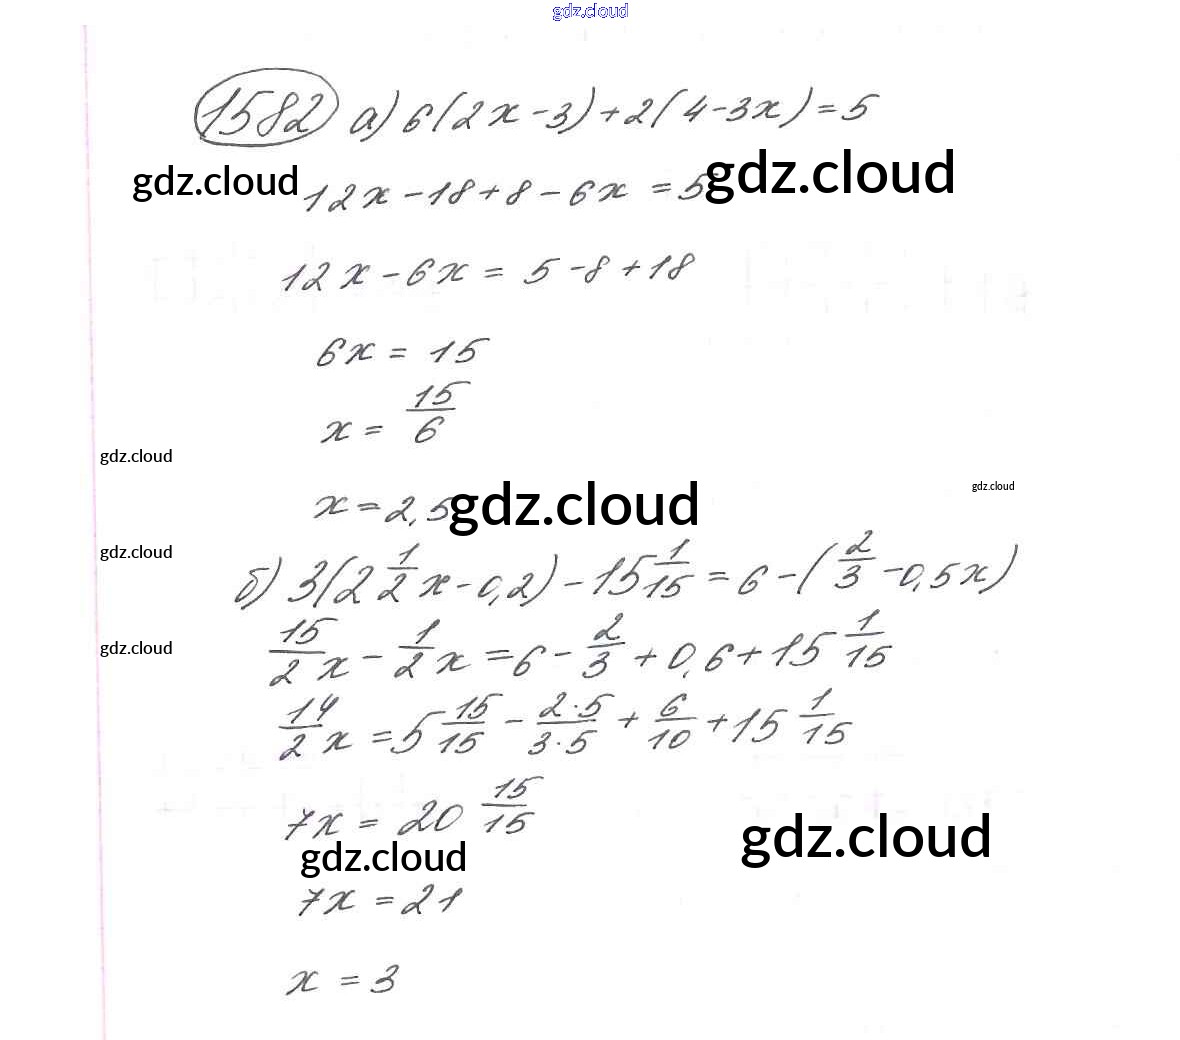 gdz.cloud
1582 а) 6(2x-3)+2(4-3x)=5
gdz.cloud 12x-18+8-6x=5 gdz.cloud
12x-6x=5-8+18
6x=15
x=15/6
gdz.cloud
x=2,5 gdz.cloud gdz.cloud
gdz.cloud
б) 3(2 1/2 x-0,2)-15 1/15=6-(2/3-0,5x)
gdz.cloud 15/2 x-1/2 x=6-2/3+0,6+15 1/15
14/2 x=5 15/15-2·5/3·5+6/10+15 1/15
7x=20 15/15
gdz.cloud gdz.cloud
7x=21
x=3